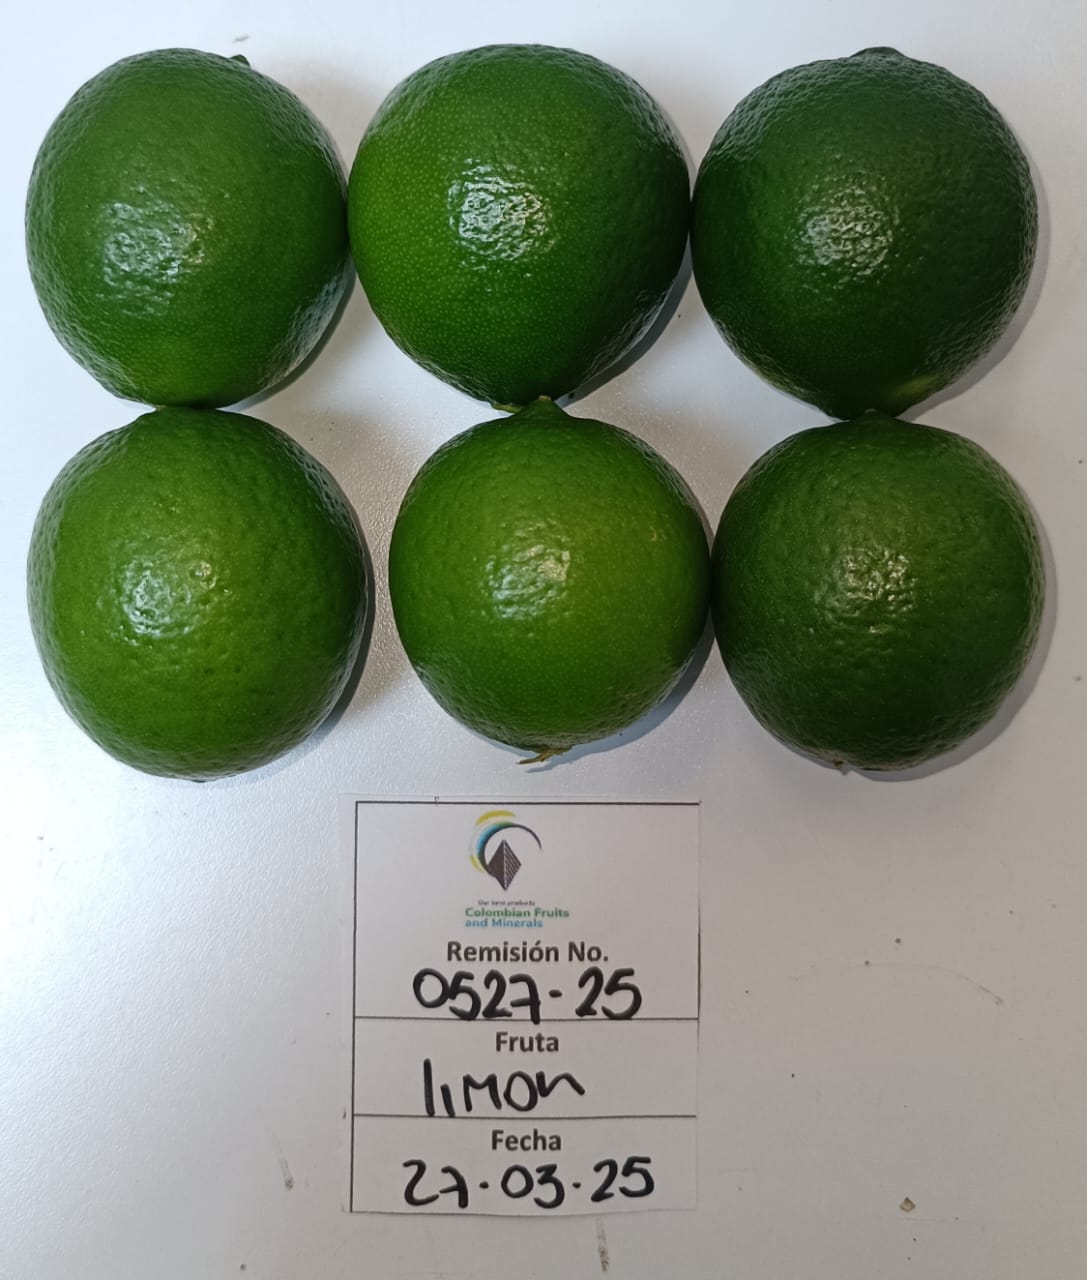 Our best products
Colombian Fruits
and Minerals
Remisión No.
0527-25
Fruta
limon
Fecha
27.03.25